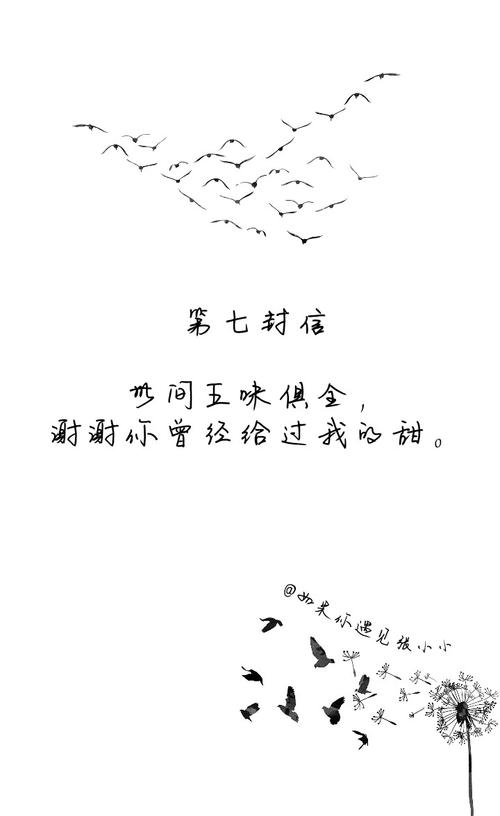 第七封信
世间五味俱全，
谢谢你曾经给过我的甜。
@如果你遇见张小小